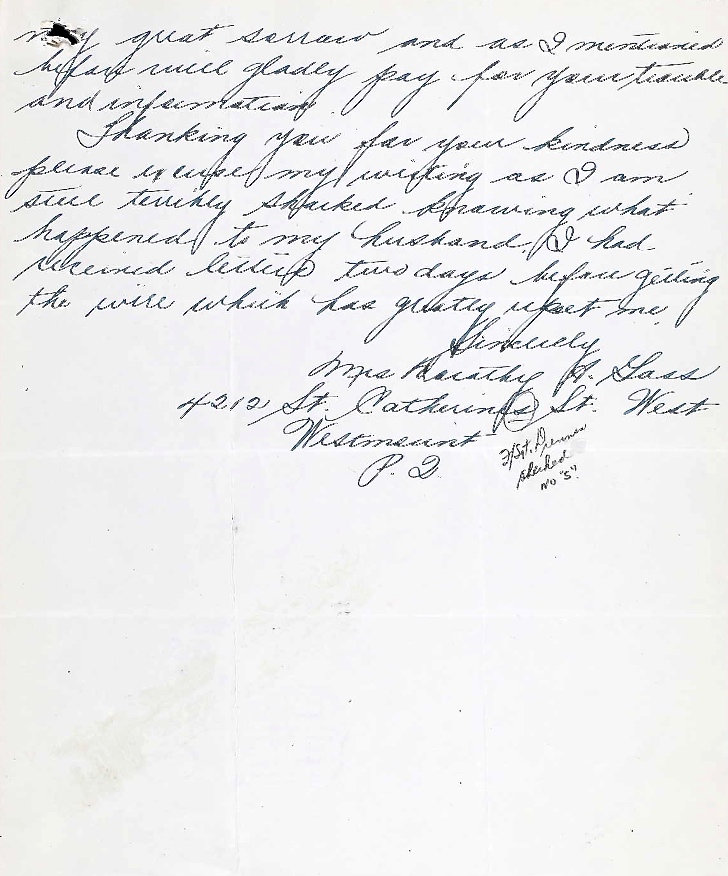 my great sorrow and as I mentioned
before will gladly pay for your trouble
and information.
Thanking you for your kindness
please excuse my writing as I am
still terribly shocked knowing what
happened to my husband, I had
received letters two days before getting
the wire which has greatly upset me
Sincerely
Mrs Dorothy H. Gass
4212 St. Catherines St. West
Westmount
P. Q.
F/Sgt. Dennes
checked
no "S".